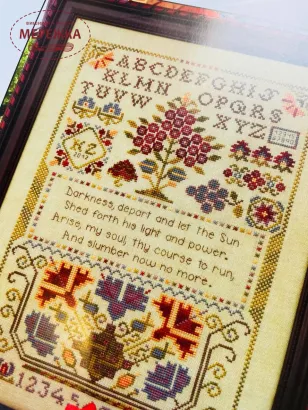 МЕРЕЖКА
ABCDEFGHIJ
KLMN OPQRS
TUVW XYZ
KZ
Darkness, depart and let the Sun
Shed forth his light and power.
Arise, my soul, thy course to run,
And slumber now no more.
12345